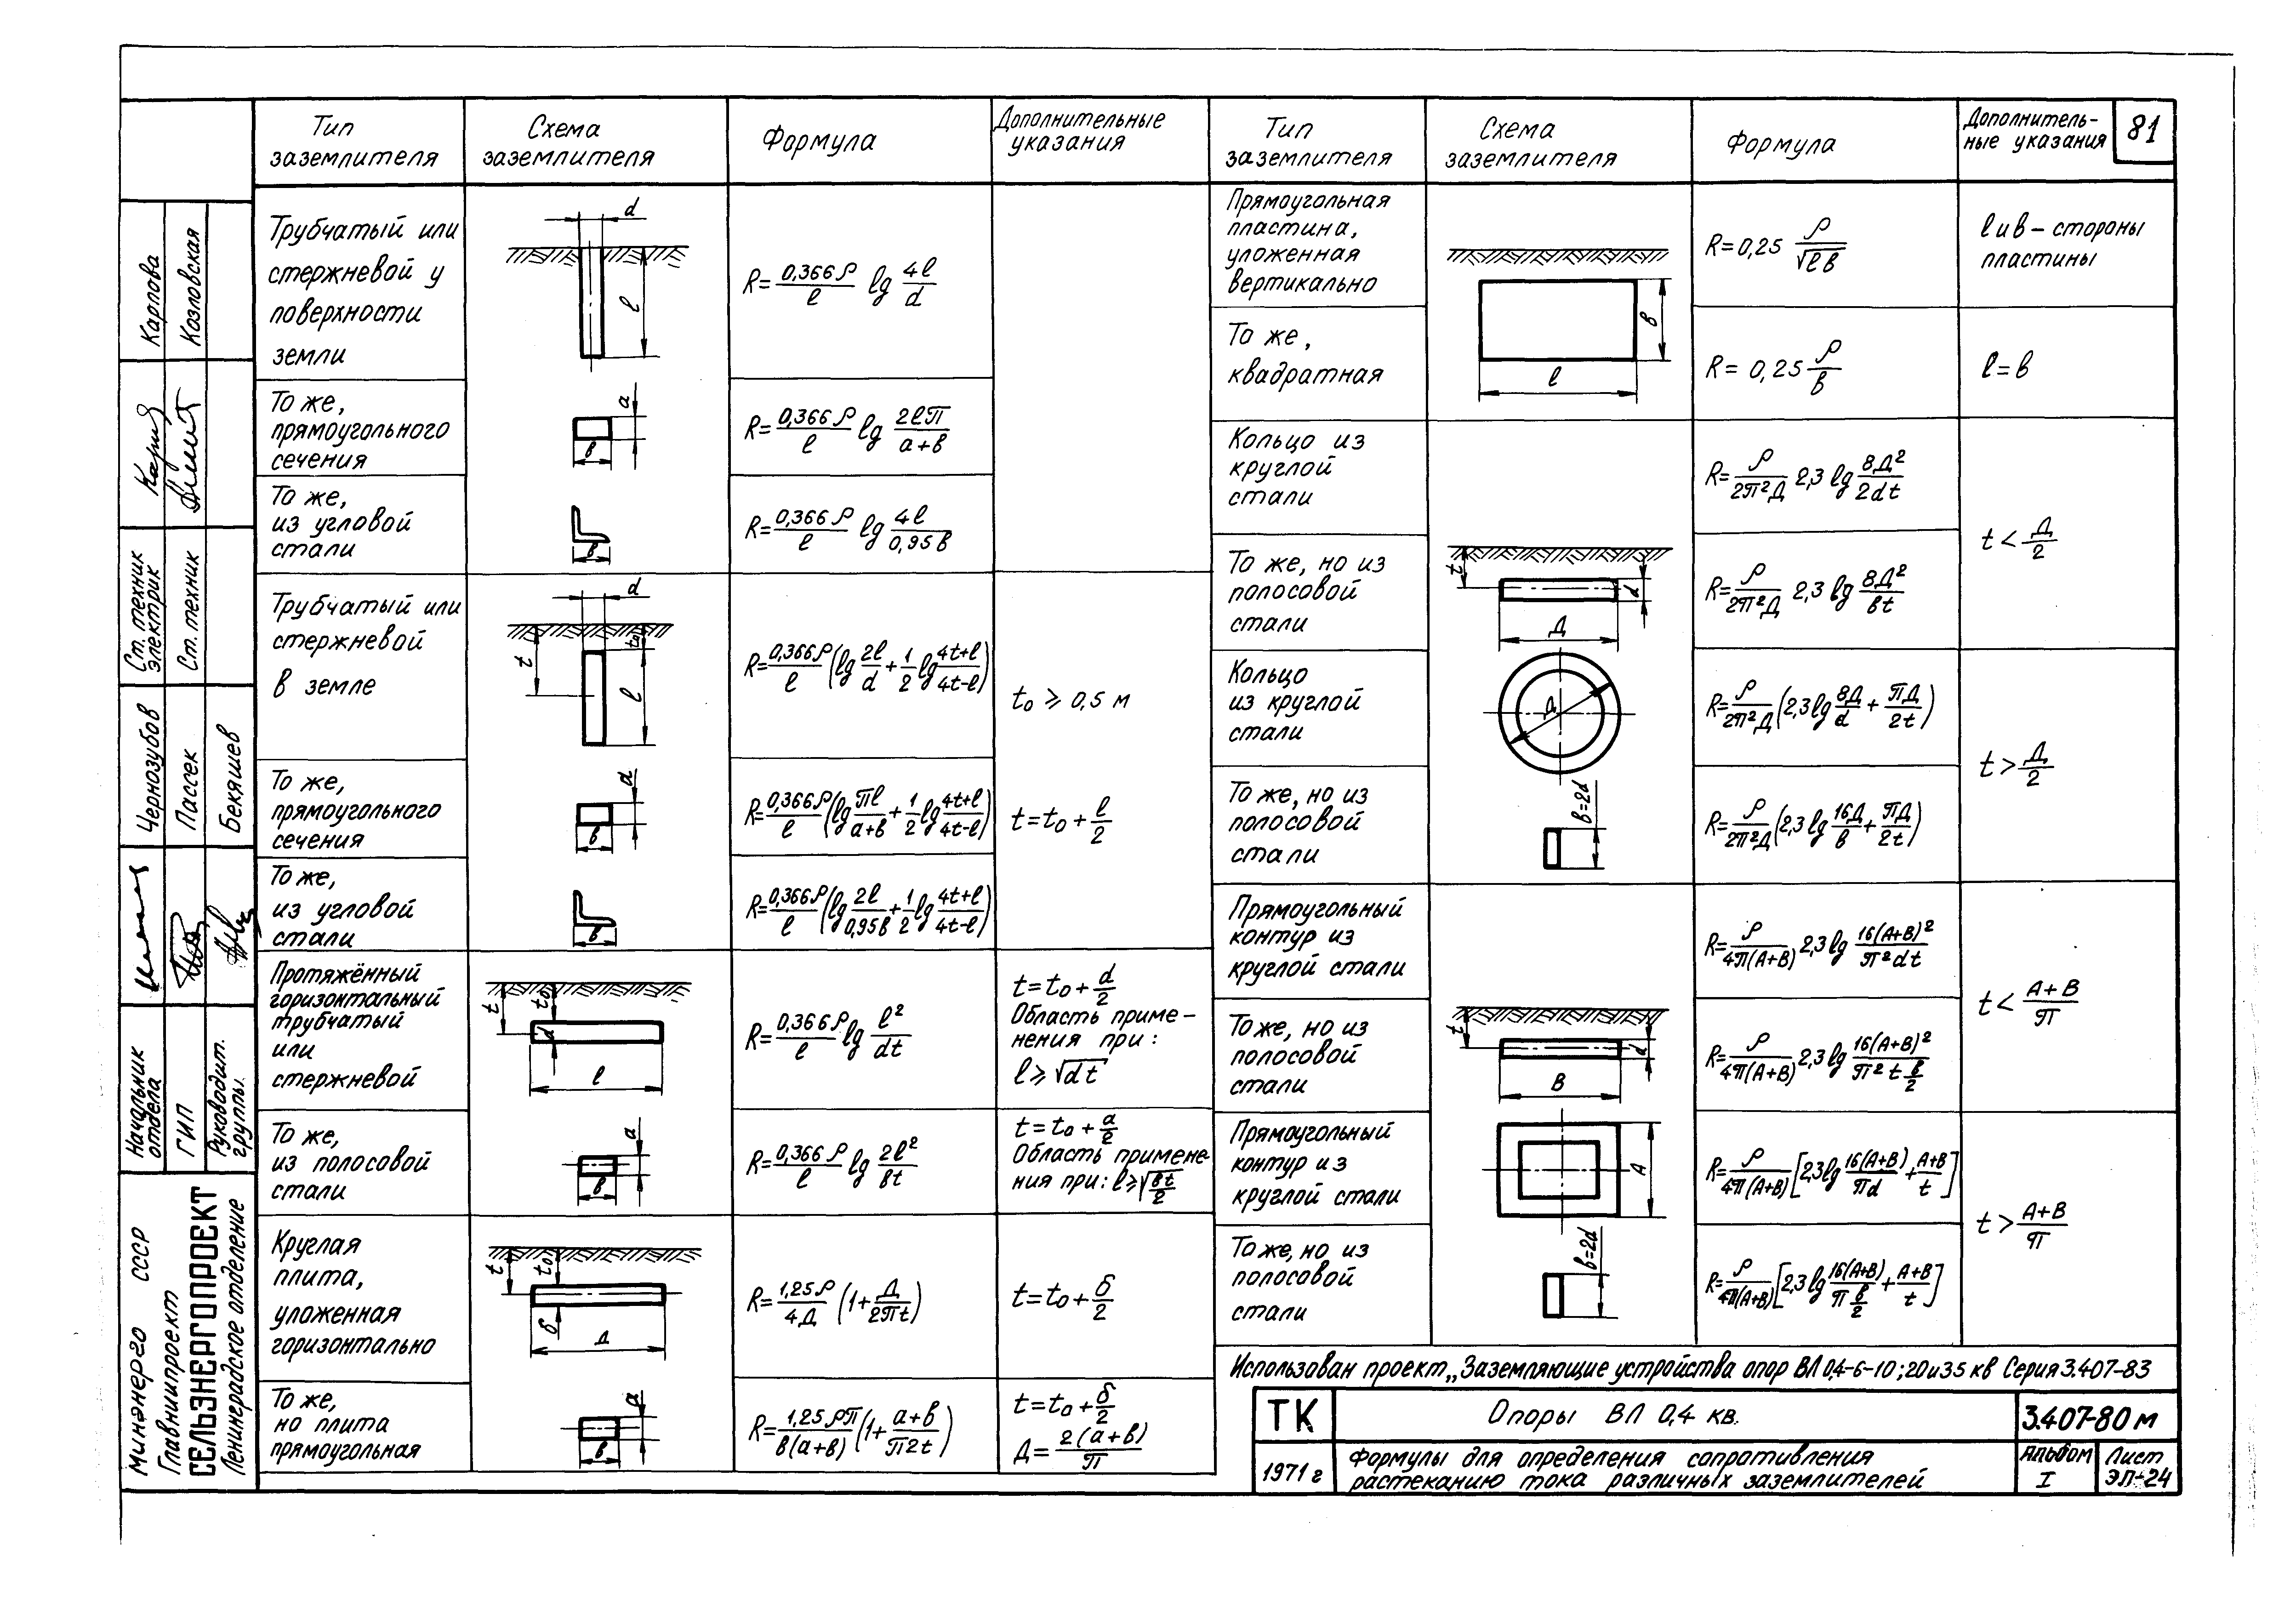 81
Тип
заземлителя
Схема
заземлителя
Формула
Дополнительные
указания
Трубчатый или
стержневой у
поверхности
земли
d
l
R=0,366ρ/l lg 4l/d
То же,
прямоугольного
сечения
а
в
R=0,366ρ/l lg 2lπ/а+в
То же,
из угловой
стали
в
R=0,366ρ/l lg 4l/0,95в
Трубчатый или
стержневой
в земле
d
t
t₀
l
R=0,366ρ/l (lg 2l/d + 1/2 lg 4t+l/4t-l)
t₀ ⩾ 0,5 м
То же,
прямоугольного
сечения
а
в
R=0,366ρ/l (lg πl/а+в + 1/2 lg 4t+l/4t-l)
t=t₀+l/2
То же,
из угловой
стали
в
R=0,366ρ/l (lg 2l/0,95в + 1/2 lg 4t+l/4t-l)
Протяжённый
горизонтальный
трубчатый
или
стержневой
t
t₀
d
l
R=0,366ρ/l lg l²/dt
t=t₀+d/2
Область приме-
нения при:
l⩾√dt
То же,
из полосовой
стали
а
в
R=0,366ρ/l lg 2l²/вt
t=t₀+а/2
Область примене
ния при: l⩾√вt/2
Круглая
плита,
уложенная
горизонтально
t
t₀
δ
Д
R=1,25ρ/4Д (1+Д/2πt)
t=t₀+δ/2
То же,
но плита
прямоугольная
а
в
R=1,25ρπ/в(а+в) (1+а+в/π2t)
t=t₀+δ/2
Д=2(а+в)/π
Тип
заземлителя
Схема
заземлителя
Формула
Дополнитель-
ные указания
Прямоугольная
пластина,
уложенная
вертикально
в
l
R=0,25 ρ/√lв
l и в – стороны
пластины
То же,
квадратная
R=0,25 ρ/в
l=в
Кольцо из
круглой
стали
R=ρ/2π²Д 2,3 lg 8Д²/2dt
t<Д/2
То же, но из
полосовой
стали
t
d
Д
R=ρ/2π²Д 2,3 lg 8Д²/вt
Кольцо
из круглой
стали
Д
R=ρ/2π²Д (2,3 lg 8Д/d + πД/2t)
t>Д/2
То же, но из
полосовой
стали
в=2d
R=ρ/2π²Д (2,3 lg 16Д/в + πД/2t)
Прямоугольный
контур из
круглой стали
R=ρ/4π(А+В) 2,3 lg 16(А+В)²/π²dt
t<А+В/π
То же, но из
полосовой
стали
t
d
В
R=ρ/4π(А+В) 2,3 lg 16(А+В)²/π²t в/2
Прямоугольный
контур из
круглой стали
А
R=ρ/4π(А+В) [2,3 lg 16(А+В)/πd + А+В/t]
t>А+В/π
То же, но из
полосовой
стали
в=2d
R=ρ/4π(А+В) [2,3 lg 16(А+В)/π в/2 + А+В/t]
Использован проект „Заземляющие устройства опор ВЛ 0,4-6-10; 20 и 35 кв Серия 3.407-83
ТК
Опоры ВЛ 0,4 кв.
3.407-80 м
1971 г
Формулы для определения сопротивления
растеканию тока различных заземлителей
Альбом
I
Лист
ЭЛ-24
Карпова
Козловская
Ст. техник
электрик
Ст. техник
Чернозубов
Пассек
Бекяшев
Начальник
отдела
ГИП
Руководит.
группы.
Минэнерго СССР
Главниипроект
СЕЛЬЭНЕРГОПРОЕКТ
Ленинградское отделение